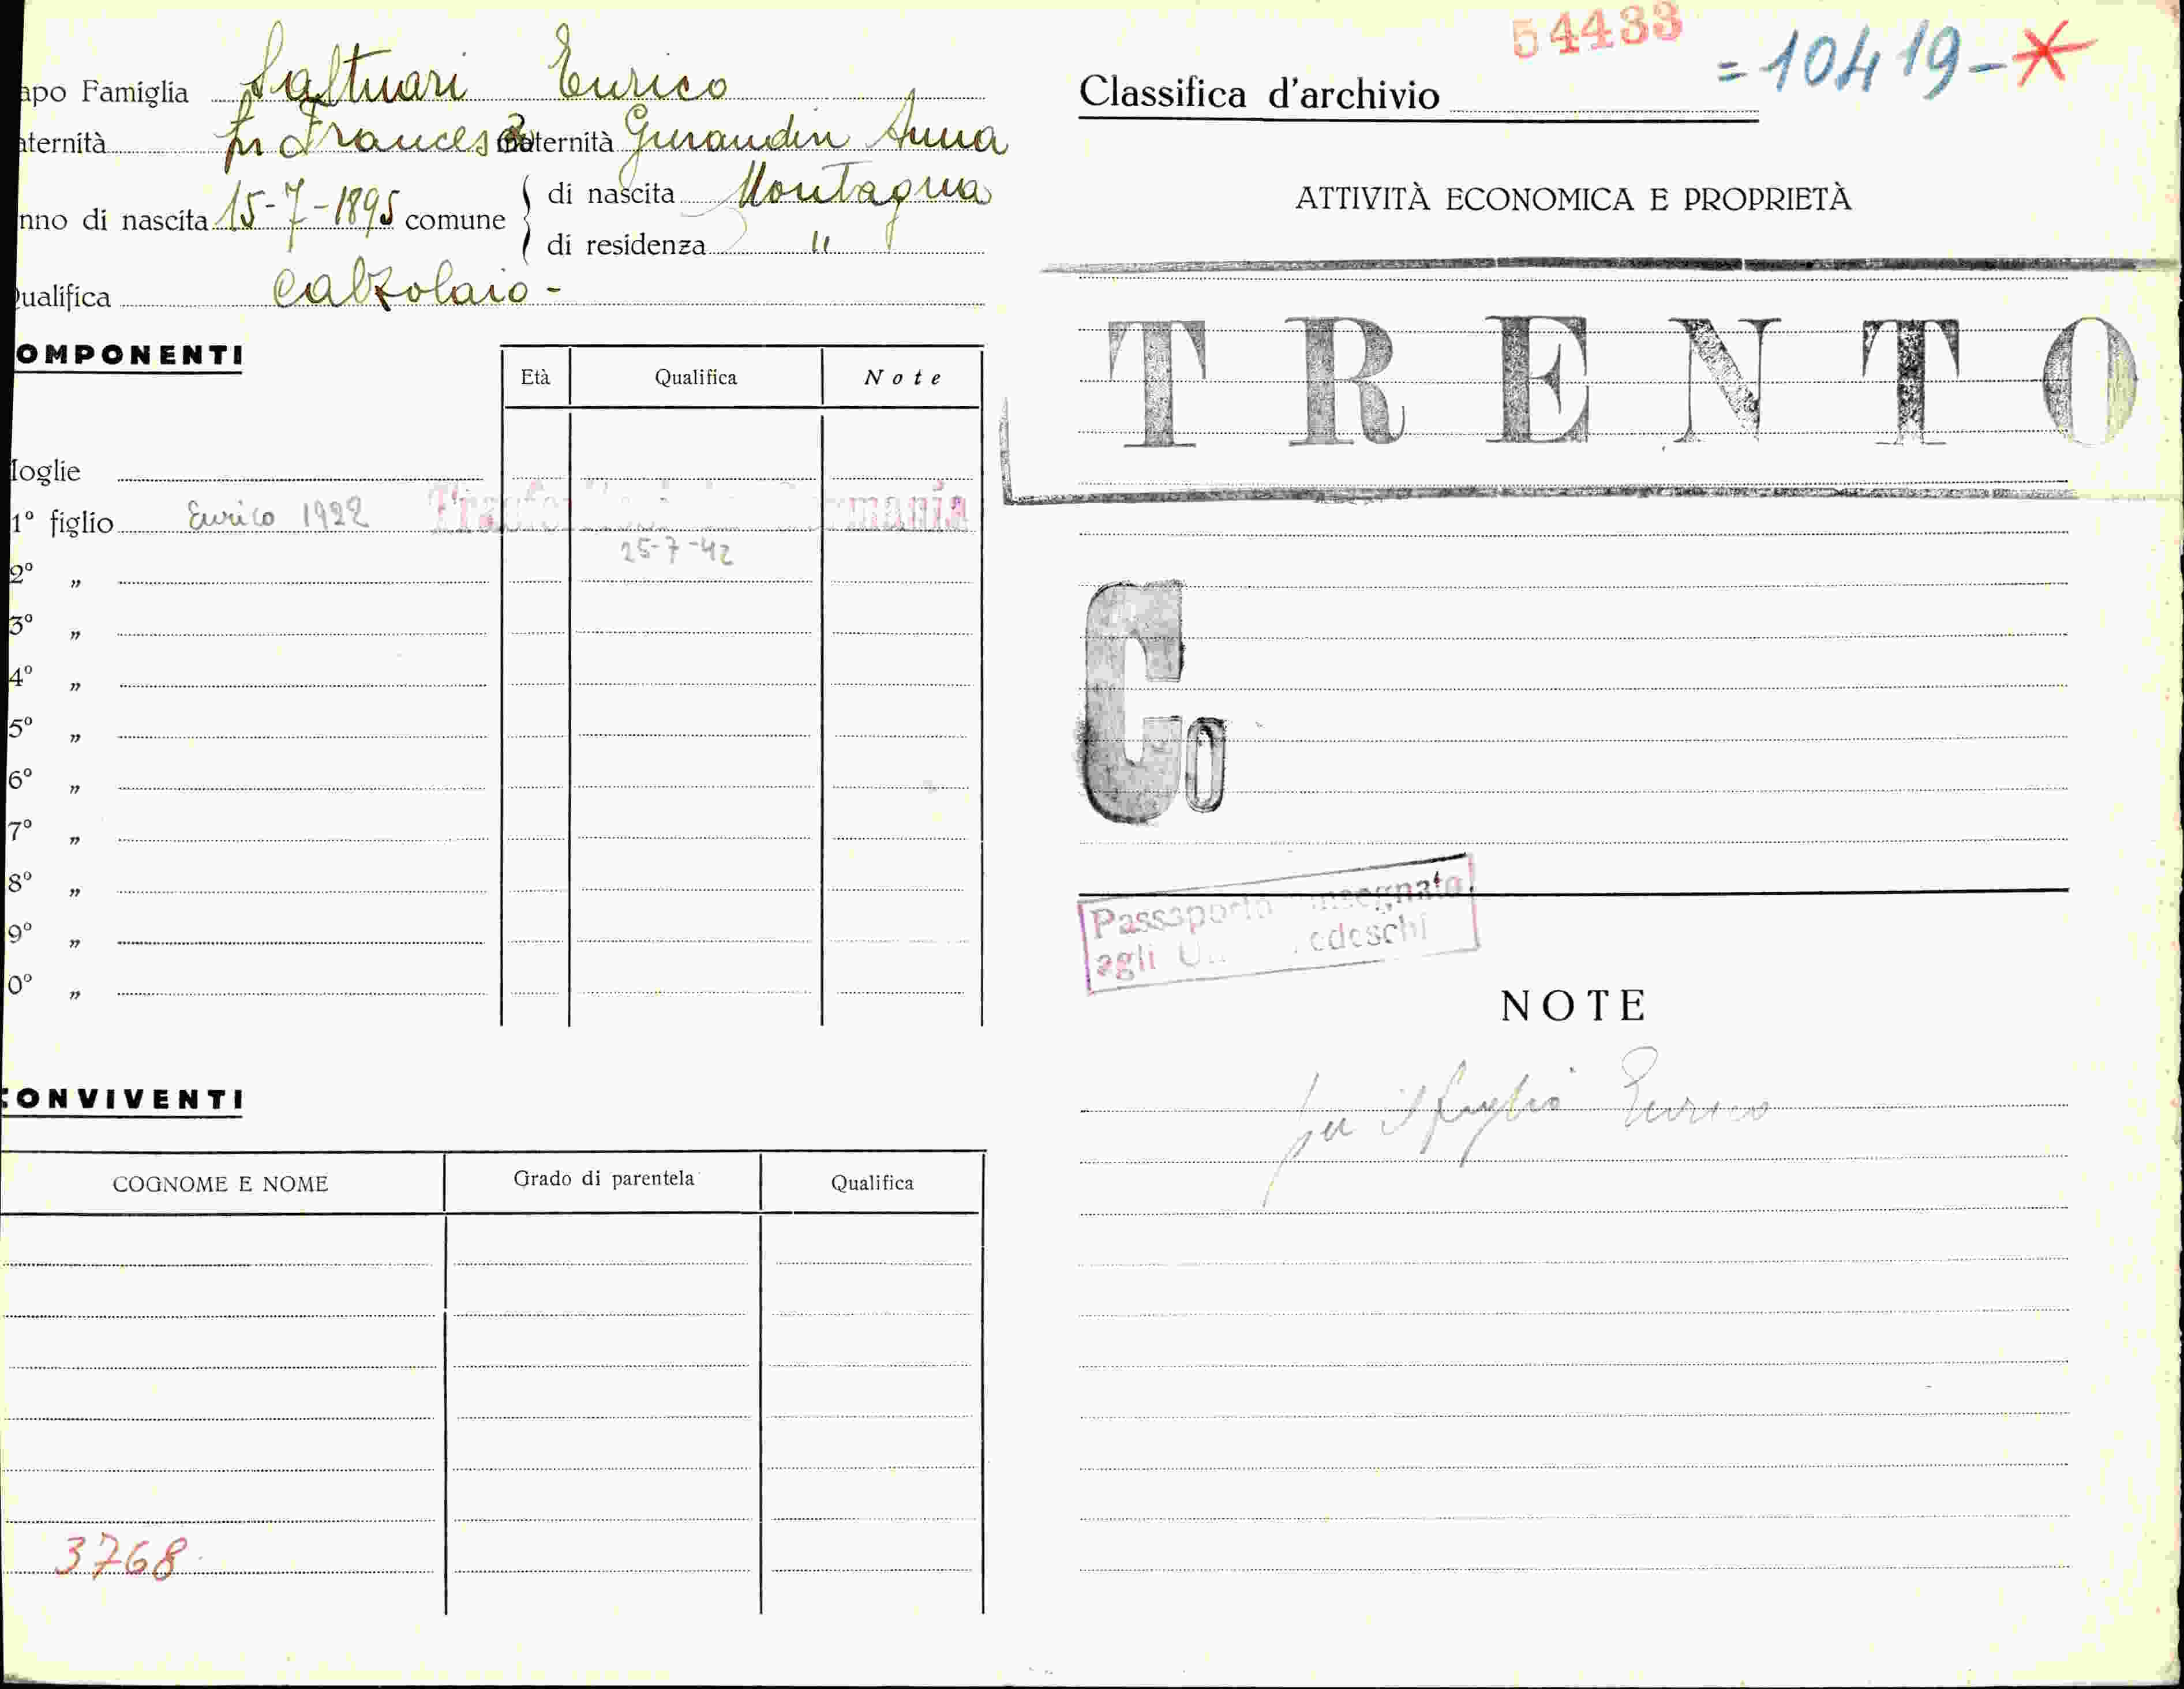 apo Famiglia Saltuari Enrico
aternità fu Francesco maternità Anna
nno di nascita 15-7-1895 comune di nascita Montagna
di residenza "
ualifica Calzolaio -
OMPONENTI
Età Qualifica Note
oglie
1° figlio Enrico 1922
25-7-42
2° "
3° "
4° "
5° "
6° "
7° "
8° "
9° "
0° "
CONVIVENTI
COGNOME E NOME Grado di parentela Qualifica
3768
54433
= 10419 - *
Classifica d'archivio
ATTIVITÀ ECONOMICA E PROPRIETÀ
TRENTO
Co
agli
NOTE
per il figlio Enrico